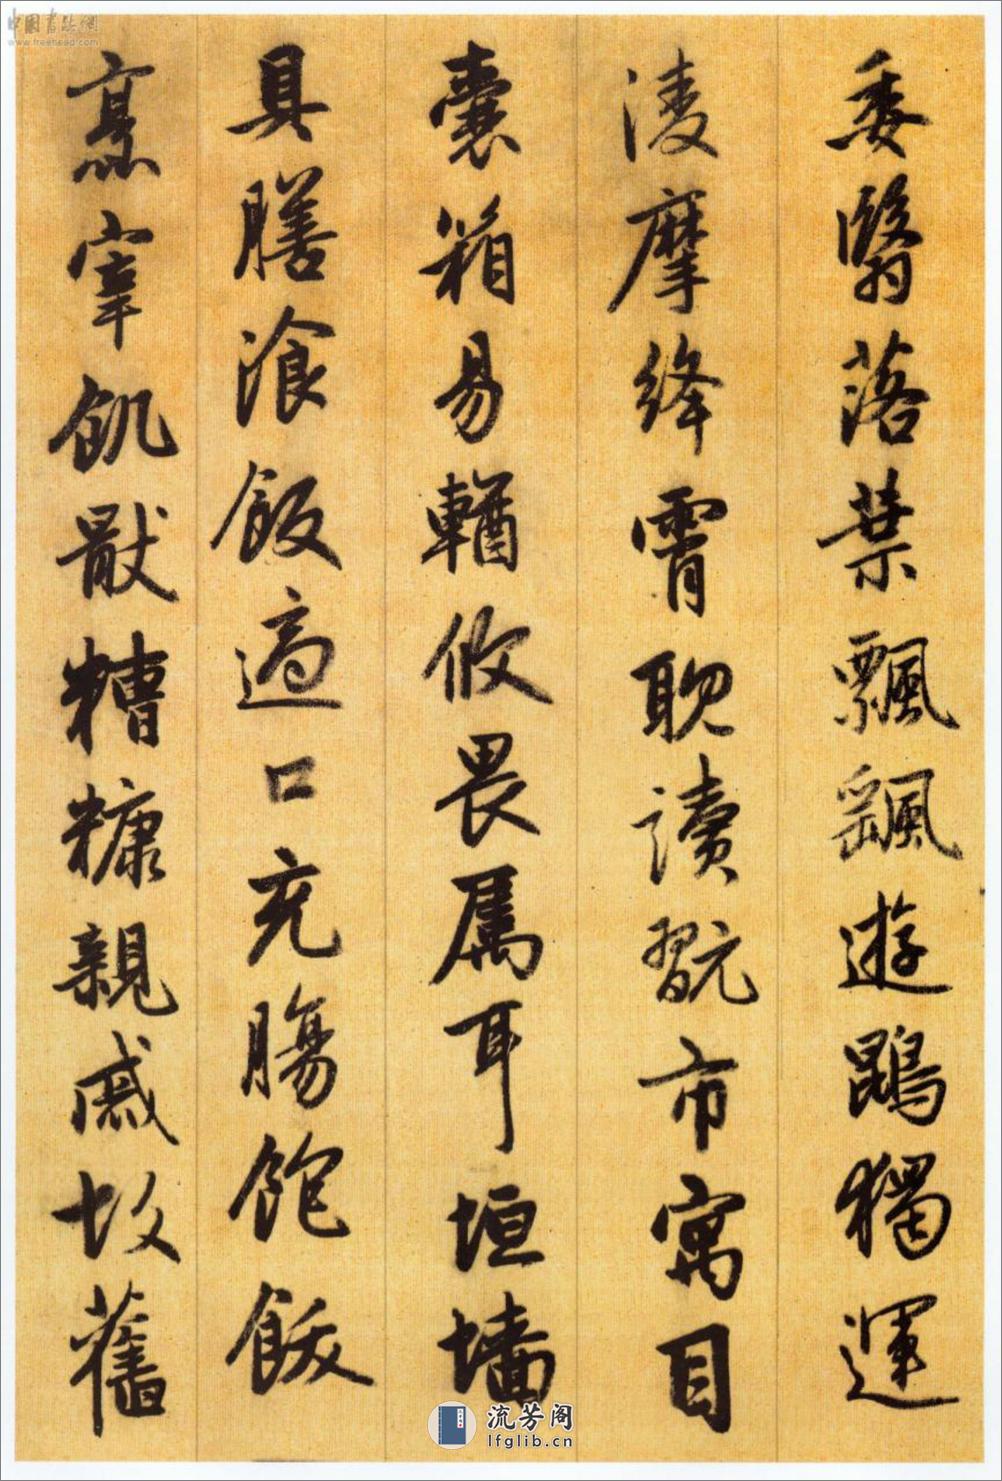 委翳落葉飄飖遊鵾獨運
淩摩絳霄耽讀翫市寓目
囊箱易輶攸畏屬耳垣墻
具膳飡飯適口充腸飽飫
烹宰飢猒糟糠親戚故舊
中国书法网
www.freehead.com
流芳阁
lfglib.cn